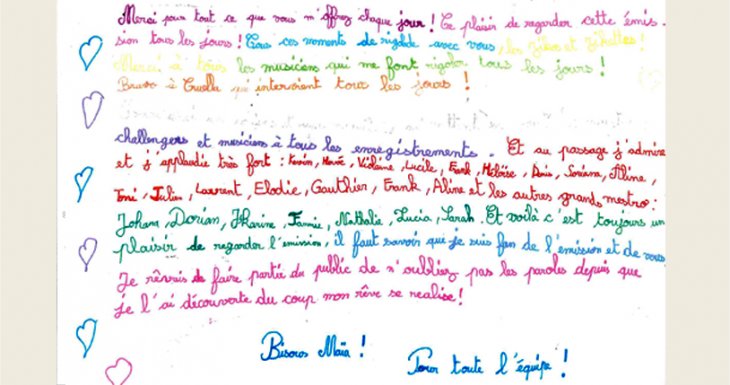 Merci pour tout ce que vous m'offrez chaque jour ! Ce plaisir de regarder cette émis-
sion tous les jours ! Tous ces moments de rigolde avec vous, les Zikos et Zikettes !
Merci à tous les musiciens qui me font rigoler tous les jours !
Bravo à Cruella qui intervient tous les jours !
challengers et musiciens à tous les enregistrements. Et au passage j'admire
et j'applaudie très fort : Kevin, Hervé, Violaine, Lucile, Frank, Héloïse, Aline,
Toni, Julien, Laurent, Elodie, Gauthier, Frank, Aline et les autres grands mestro :
Joham, Dorian, Karine, Fannie, Nathalie, Lucia, Sarah. Et voilà c'est toujours un
plaisir de regarder l'émission, il faut savoir que je suis fan de l'émission et de vous
Je rêvais de faire partie du public de n'oubliez pas les paroles depuis que
je l'ai découverte du coup mon rêve se réalise !
Bisous Maïa !
Pour toute l'équipe !